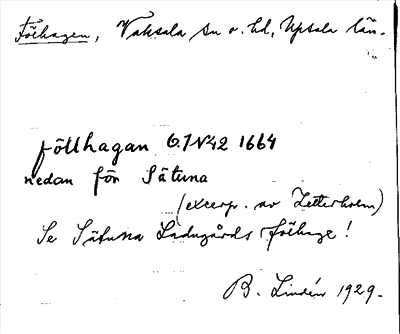 Fölhagen, Vaksala sn o. hd, Upsala län.
föllhagan G.1 N42 1664
nedan för Sätuna
(excerp. av Zetterholm)
Se Sätuna Ladugårds fölhage!
B. Lindén 1929.